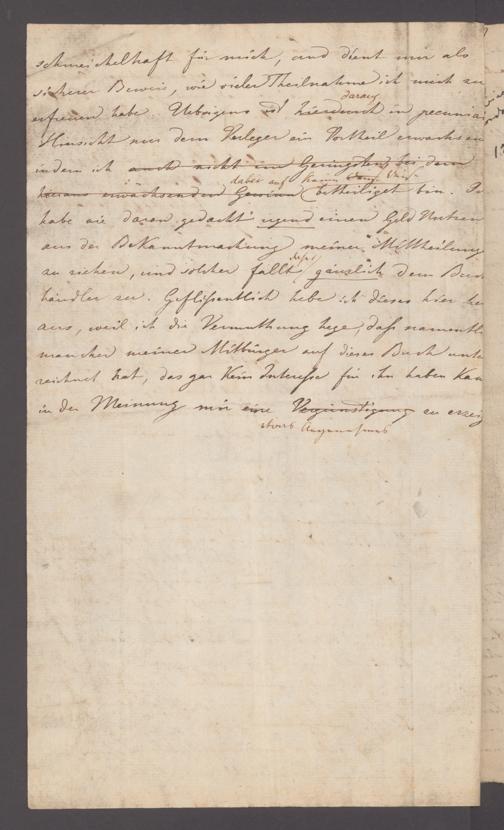 schmeichelhaft für mich, und dient mir als
sicherer Beweis, wie vieler Theilnahme ich mich zu
erfreuen habe. Uebrigens hierdurch daraus in pecuniä
Hinsicht nur dem Verleger ein Vortheil erwachsen
indem ich auch nicht im Geringsten bei dem
dabei auf keine Weis
hieraus erwachsenden Gewinn betheiliget bin. I
habe nie daran gedacht irgend einen Geld Nutzen
aus der Bekanntmachung meiner Mittheilung
zu ziehen, und solcher fällt gänzlich dem Buch
händler zu. Geflissentlich hebe ich dieses hier her
aus, weil ich die Vermuthung hege, daß namentli
mancher meiner Mitbürger auf dieses Buch unter
zeichnet hat, das gar kein Interesse für ihn haben kan
in der Meinung mir eine Vergünstigung zu erzeig
etwas Angenehmes